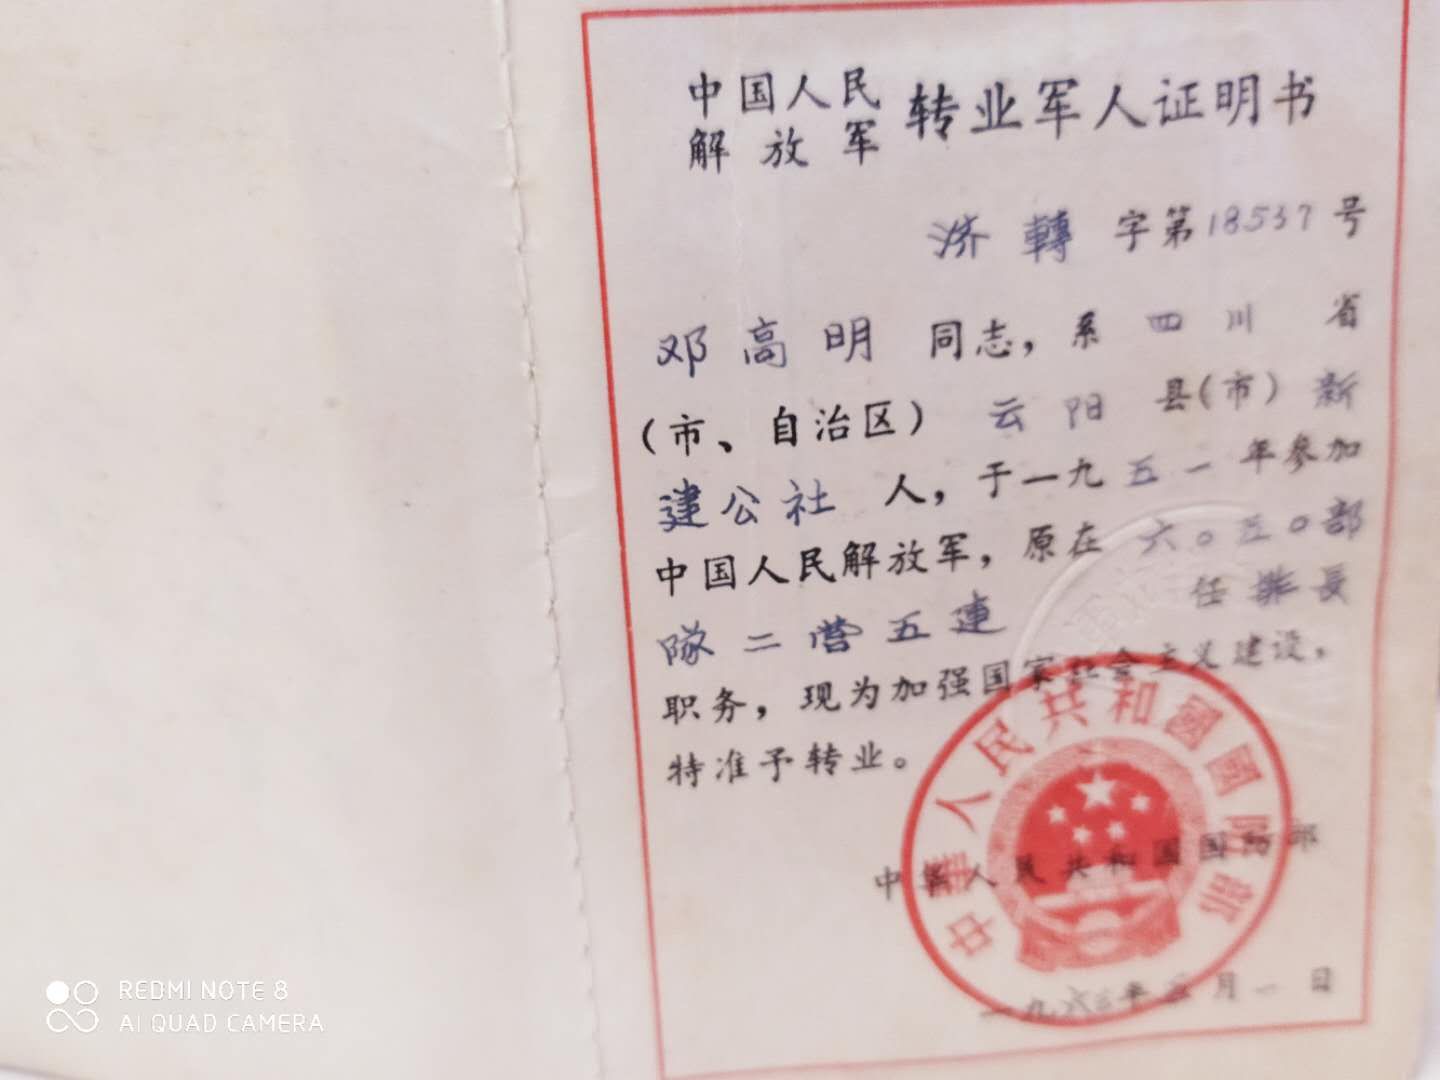 中国人民
解放军
转业军人证明书
济轉字第18537号
邓高明同志，系四川省
（市、自治区）云阳县（市）新
建公社人，于一九五一年参加
中国人民解放军，原在六〇五〇部
隊二营五連任排長
职务，现为加强国家社会主义建设，
特准予转业。
中华人民共和国国防部
中華人民共和國國防部
一九六三年三月一日
REDMI NOTE 8
AI QUAD CAMERA